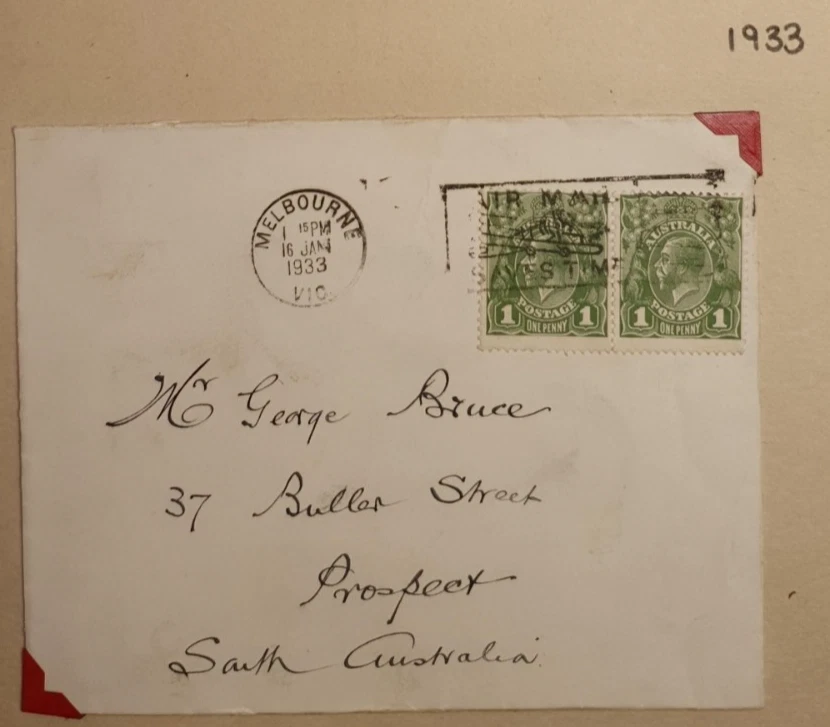 1933
MELBOURNE
1 15PM
16 JAN
1933
VIC.
AIR MAIL
SAVES TIME
AUSTRALIA
POSTAGE
1 ONE PENNY 1
POSTAGE
1 ONE PENNY 1
Mr George Bruce
37 Buller Street
Prospect
South Australia.